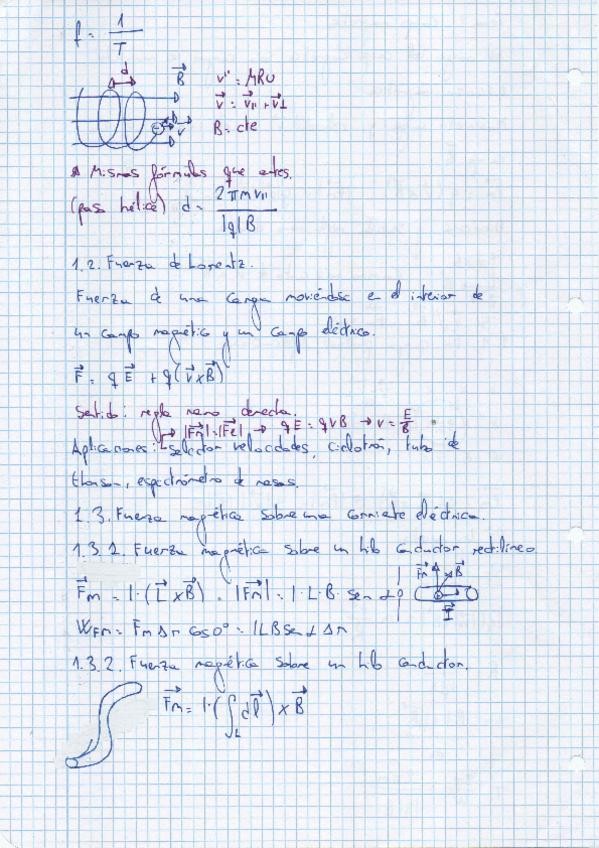 f = 1/T
d
B⃗
v'' = MRU
v⃗ = v⃗∥ + v⃗⊥
v⃗
B = cte
* Mismas fórmulas que antes.
(paso hélice) d = 2πmv∥ / |q|B
1.2. Fuerza de Lorentz.
Fuerza de una carga moviéndose en el interior de
un campo magnético y un campo eléctrico.
F⃗ = qE⃗ + q(v⃗ x B⃗)
Sentido: regla mano derecha.
→ |F⃗m| = |F⃗e| → qE = qvB → v = E/B
Aplicaciones: selector velocidades, ciclotrón, tubo de
thomson, espectrómetro de masas.
1.3. Fuerza magnética sobre una corriente eléctrica.
1.3.1. Fuerza magnética sobre un hilo conductor rectilíneo
F⃗m = I·(L⃗ x B⃗) . |F⃗m| = I·L·B· sen α
F⃗m B⃗
I⃗
WFm = Fm Δr cos 0° = ILB sen α Δr
1.3.2. Fuerza magnética sobre un hilo conductor.
F⃗m = I·(∫L dl⃗) x B⃗